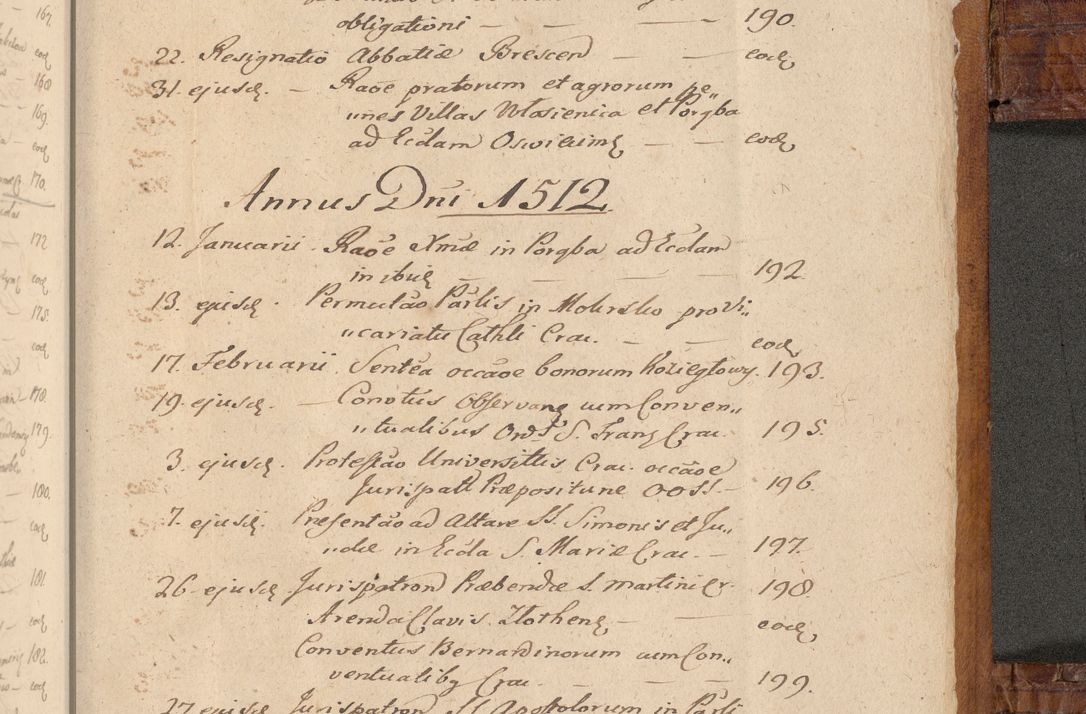 obligationi — — — 190.
22. Resignatio Abbatiæ Brescen — — eod
31. ejusd. — Raõe pratorum et agrorum pe„
„nes Villas Wlosienica et Porgba
ad Ecclam Oswiecimē — — eod
Annus Dñi 1512.
12. Januarii. Raõe Xmæ in Porgba ad Ecclam
in ibid — — — 192
13. ejusd. Permutão Partis in Mokrsko pro Vi„
„cariatu Cathli Crac. — — eod
17. Februarii. Sentêa occãoe bonorum Kozieglowy. 193.
19. ejusd. — Conotus Observan cum Conven„
„tualibus Ord. S. Franz Crac. 195.
3. ejusd. Protestão Universittis Crac. occãoe
Jurispatt Præpositurae OO SS. — 196.
7. ejusd. Presentão ad Altare SS. Simonis et Ju„
„dæ in Eccla S. Mariæ Crac. — 197.
26. ejusd. Jurispatron Præbendæ S. Martini Cr. 198.
Arenda Clavis Zlothen — — eod
Conventus Bernardinorum cum Con„
ventualibq Crac. — — 199.
27 ejusd. Jurispatron SS. Apostolorum in Parti
167.
eod
168
169.
eod
170.
172
eod
175.
eod
178.
179.
180.
eod
181.
eod
182.
eod